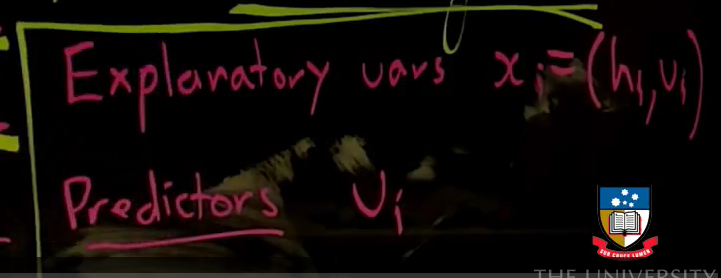 Explanatory vars x_i = (h_i, v_i)
Predictors v_i
SUB CRUCE LUMEN
THE UNIVERSITY